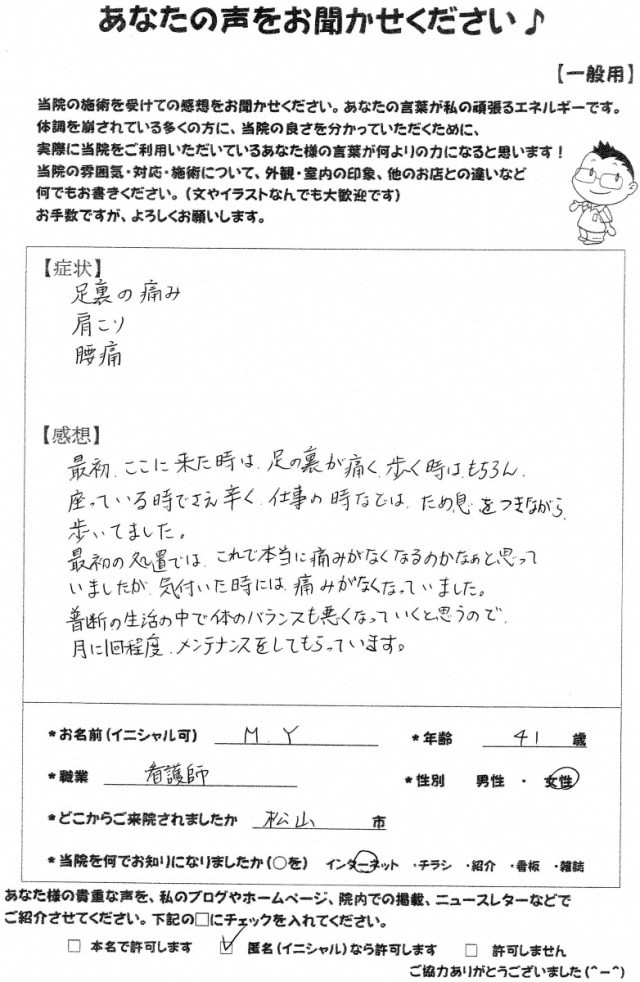 あなたの声をお聞かせください♪
【一般用】
当院の施術を受けての感想をお聞かせください。あなたの言葉が私の頑張るエネルギーです。
体調を崩されている多くの方に、当院の良さを分かっていただくために、
実際に当院をご利用いただいているあなた様の言葉が何よりの力になると思います！
当院の雰囲気・対応・施術について、外観・室内の印象、他のお店との違いなど
何でもお書きください。（文やイラストなんでも大歓迎です）
お手数ですが、よろしくお願いします。
【症状】
足裏の痛み
肩こり
腰痛
【感想】
最初、ここに来た時は、足の裏が痛く、歩く時はもちろん、
座っている時でさえ辛く、仕事の時などは、ため息をつきながら、
歩いてました。
最初の処置では、これで本当に痛みがなくなるのかなぁと思って
いましたが、気付いた時には、痛みがなくなっていました。
普断の生活の中で体のバランスも悪くなっていくと思うので、
月に1回程度、メンテナンスをしてもらっています。
*お名前（イニシャル可） M.Y *年齢 41 歳
*職業 看護師 *性別 男性 ・ 女性
*どこからご来院されましたか 松山 市
*当院を何でお知りになりましたか（○を） インターネット ・チラシ ・紹介 ・看板 ・雑誌
あなた様の貴重な声を、私のブログやホームページ、院内での掲載、ニュースレターなどで
ご紹介させてください。下記の□にチェックを入れてください。
□ 本名で許可します ☑ 匿名（イニシャル）なら許可します □ 許可しません
ご協力ありがとうございました（＾－＾）